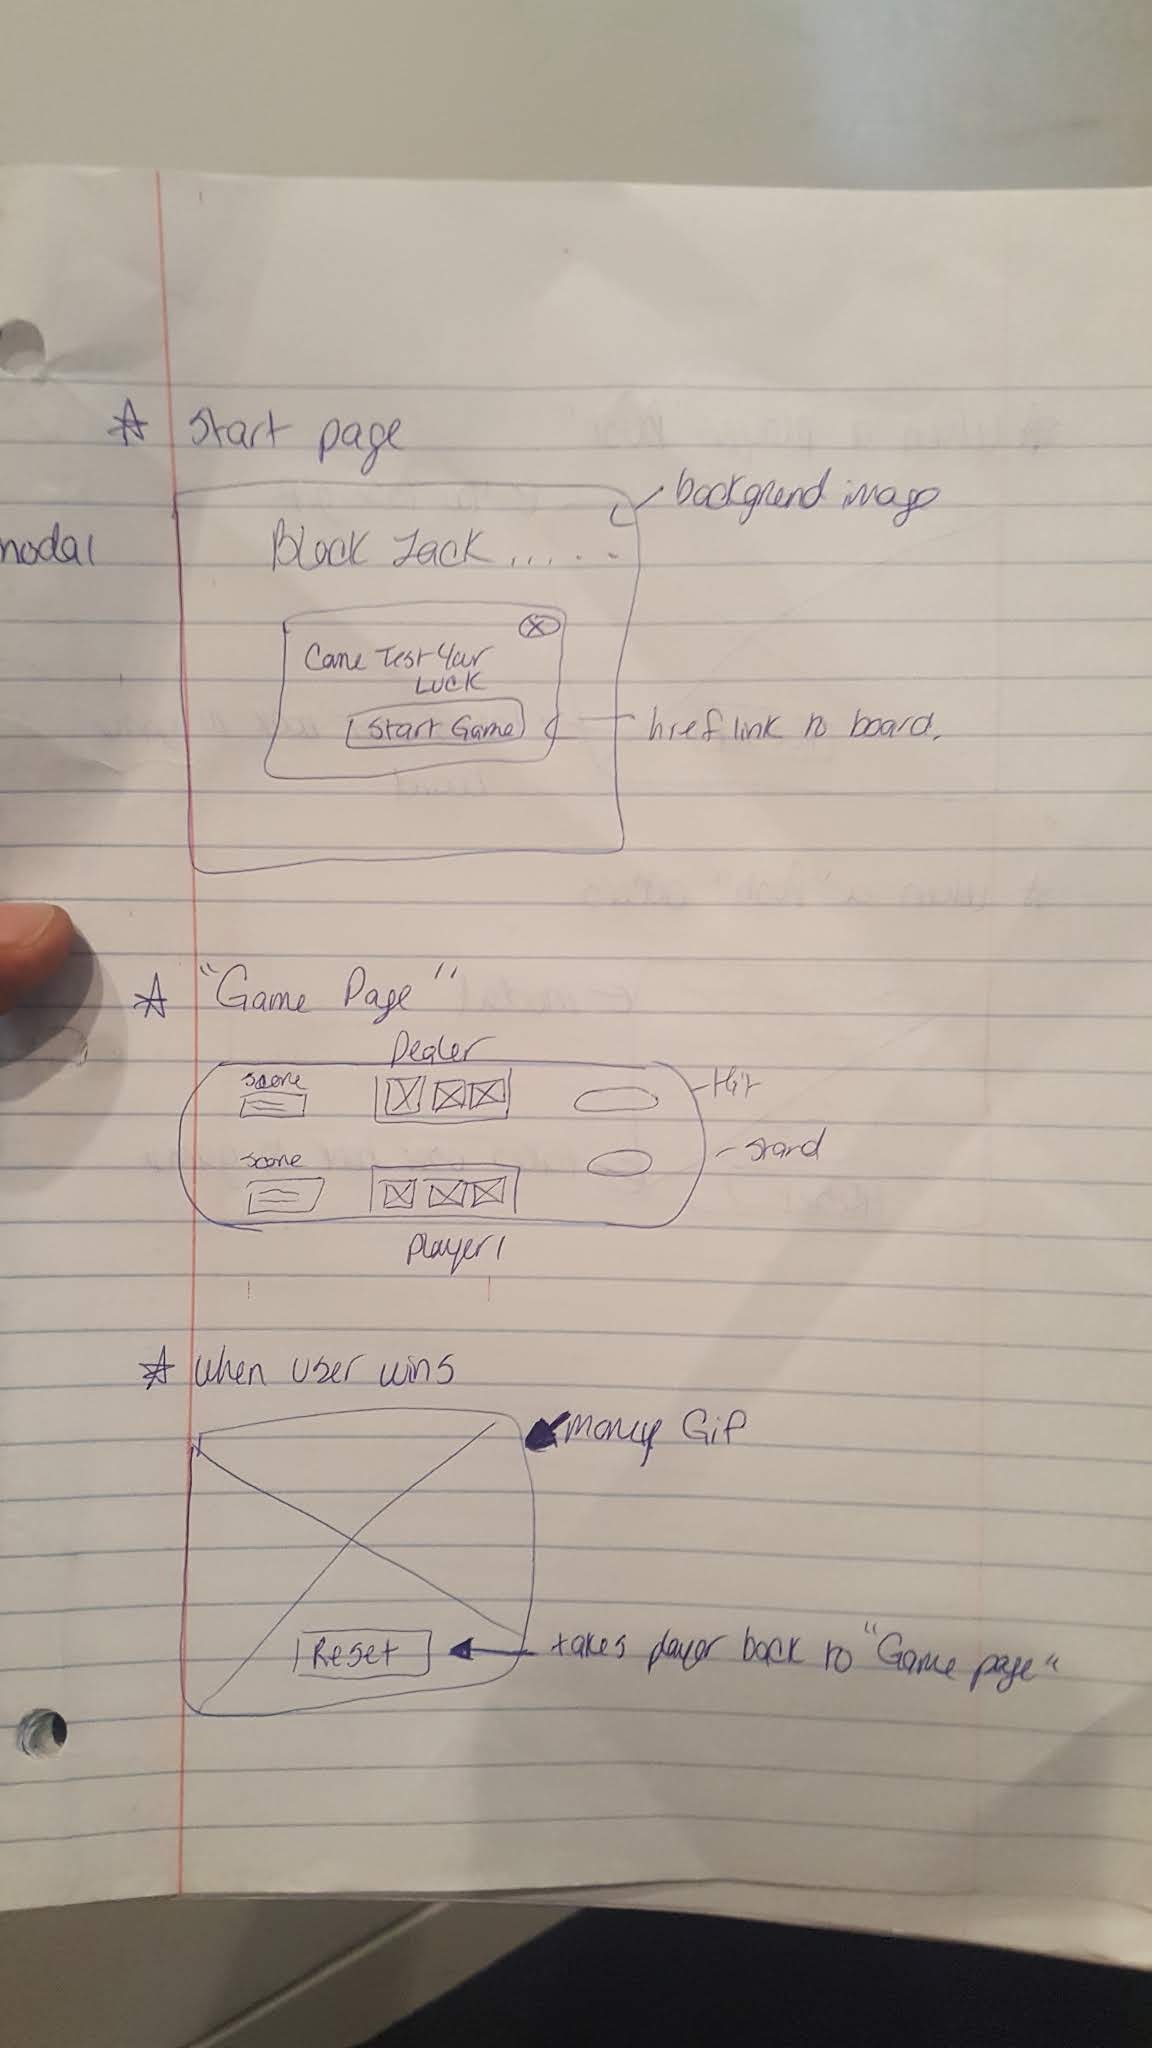 ☆ Start page
backgrend imago
modal
Block Jack......
X
Come Test Your
LUCK
Start Game
href link to board.
☆ "Game Page"
Dealer
score
Hit
score
stand
Player 1
☆ when user wins
money Gif
Reset
takes player back to "Game page"